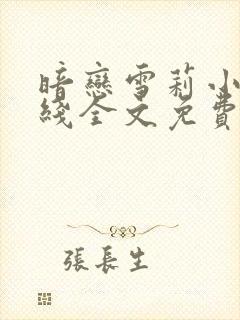 暗戀雪莉小
綫全文免費
張長生